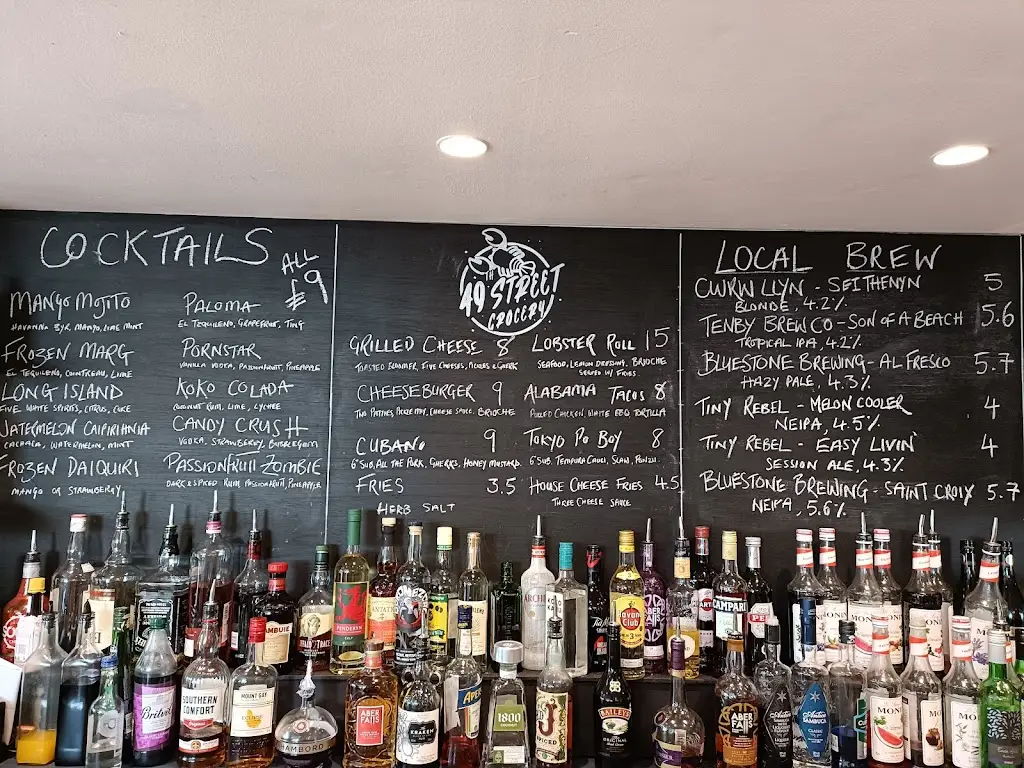 COCKTAILS
ALL
£9
MANGO MOJITO
HAVANNA 3YR, MANGO, LIME MINT
FROZEN MARG
EL TEQUILENO, COINTREAU, LIME
LONG ISLAND
FIVE WHITE SPIRITS, CITRUS, COKE
WATERMELON CAIPIRIHNIA
CACHACA, WATERMELON, MINT
FROZEN DAIQUIRI
MANGO OR STRAWBERRY
PALOMA
EL TEQUILENO, GRAPEFRUIT, TING
PORNSTAR
VANILLA VODKA, PASSIONFRUIT, PINEAPPLE
KOKO COLADA
COCONUT RUM, LIME, LYCHEE
CANDY CRUSH
VODKA, STRAWBERRY, BUBBLEGUM
PASSIONFRUIT ZOMBIE
DARK & SPICED RUM, PASSIONFRUIT, PINEAPPLE
49TH STREET
GROCERY
GRILLED CHEESE 8
TOASTED BLOOMER, FIVE CHEESES, PICKLES & GHERK
CHEESEBURGER 9
TWO PATTIES, CHEESE SAUCE, BRIOCHE
CUBANO 9
6" SUB, ALL THE PORK, GHERKS, HONEY MUSTARD
FRIES 3.5
HERB SALT
LOBSTER ROLL 15
SEAFOOD, LEMON DRESSING, BRIOCHE
SERVED W/ FRIES
ALABAMA TACOS 8
PULLED CHICKEN, WHITE BBQ TORTILLA
TOKYO PO BOY 8
6" SUB, TEMPURA CAULI, SLAW, PONZU
HOUSE CHEESE FRIES 4.5
THREE CHEESE SAUCE
LOCAL BREW
CWRW LLYN - SEITHENYN 5
BLONDE, 4.2%
TENBY BREW CO - SON OF A BEACH 5.6
TROPICAL IPA, 4.2%
BLUESTONE BREWING - AL FRESCO 5.7
HAZY PALE, 4.3%
TINY REBEL - MELON COOLER 4
NEIPA, 4.5%
TINY REBEL - EASY LIVIN' 4
SESSION ALE, 4.3%
BLUESTONE BREWING - SAINT CROIX 5.7
NEIPA, 5.6%
PENDERYN
Havana
Club
CAMPARI
MONIN
Britvic
SOUTHERN
COMFORT
MOUNT GAY
CHAMBORD
ABER
FALLS
KRAKEN
APEROL
1800
SPICED
BAILEYS
ORIGINAL
ABER
FALLS
Antica
SAMBUCA
Antica
SAMBUCA
CLASSIC